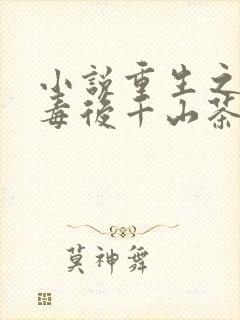 小説重生之
毒後千山茶
莫神舞